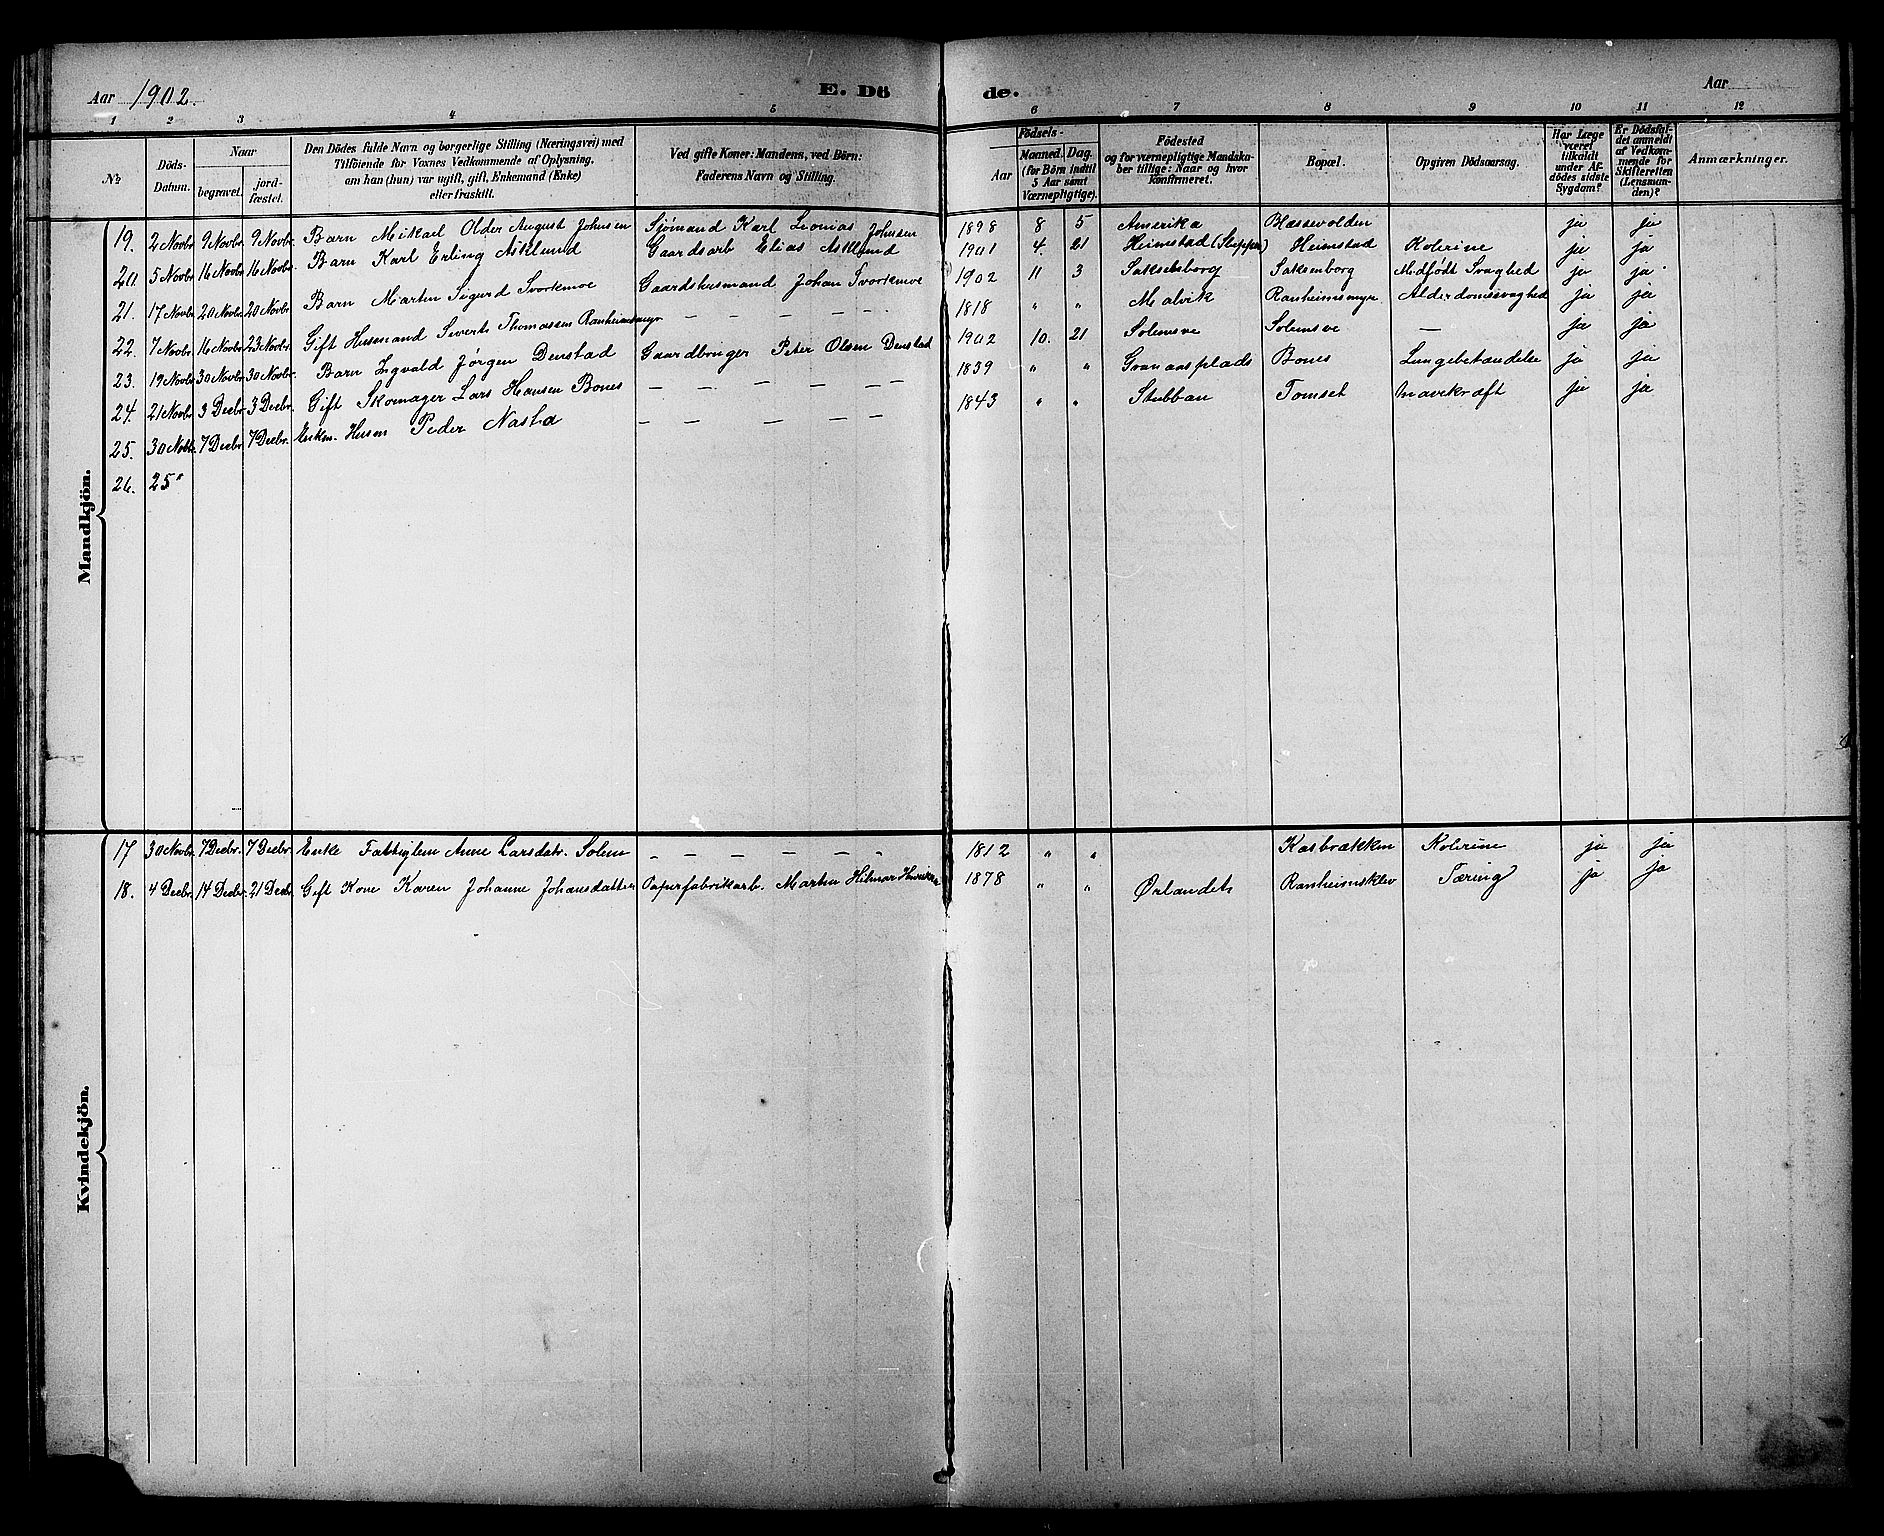 Aar 1902.
E. Dö de.
Aar
1 2 3 4 5 6 7 8 9 10 11 12
№
Döds-Datum.
Naar
begravet.
jord-fæstet.
Den Dödes fulde Navn og borgerlige Stilling (Næringsvei) med
Tilföiende for Voxnes Vedkommende af Oplysning,
om han (hun) var ugift, gift, Enkemand (Enke)
eller fraskilt.
Ved gifte Koner: Mandens, ved Börn:
Faderens Navn og Stilling.
Födsels-
Aar
Maaned. Dag.
(for Börn indtil
5 Aar samt
Værnepligtige).
Födested
og for værnepligtige Mandska-
ber tillige: Naar og hvor
Konfirmeret.
Bopæl.
Opgiven Dödsaarsag.
Har Læge
været
tilkaldt
under Af-
dödes sidste
Sygdom?
Er Dödsfal-
det anmeldt
af Vedkom-
mende for
Skifteretten
(Lensman-
den)?
Anmærkninger.
Mandkjön.
19. 2 Novbr. 9 Novbr. 9 Novbr. Barn Mikael Older August Johnsen Sjömand Karl Leonias Johnsen 1898 8 5 Amerika Blæssevolden ja ja
20. 5 Novbr. 16 Novbr. 16 Novbr. Barn Karl Erling Asklund Gaardsarb Elias Asklund 1901 4. 21 Heimstad (Sluppen) Heimstad Kolerine ja ja
21. 17 Novbr. 20 Novbr. 20 Novbr. Barn Martin Sigurd Svortemoe Gaardshusmand Johan Svortemoe 1902 11 3 Sakselsborg Saksenborg Medfödt Svaghed ja ja
22. 7 Novbr. 16 Novbr. 23 Novbr. Gift Husmand Sivert Thomassen Ranheimsmyr — — — — — 1818 " " Malvik Ranheimsmyr Alderdomssvaghed ja ja
23. 19 Novbr. 30 Novbr. 30 Novbr. Barn Ingvald Jörgen Denstad Gaardbruger Peter Olsen Denstad 1902 10. 21 Solemsve Solemsve — ja ja
24. 21 Novbr. 3 Decbr. 3 Decbr. Gift Skomager Lars Hansen Bones — — — — — 1839 " " Granaasplads Bones Lungebetændelse ja ja
25. 30 Novbr. 7 Decbr. 7 Decbr. Enkm. Husm Peder Nasta — — — — — 1843 " " Stubban Tomset Mavekræft ja ja
26. 25 "
Kvindekjön.
17 30 Novbr. 7 Decbr. 7 Decbr. Enke Fattiglem Anne Larsdatr. Solem — — — — — 1812 " " Kasbrækken Kolerine ja ja
18. 4 Decbr. 14 Decbr. 21 Decbr Gift Kone Karen Johanne Johansdatter Papirfabrikarb. Martin Hilmar 1878 " " Ørlandet Ranheimsklev Tæring ja ja